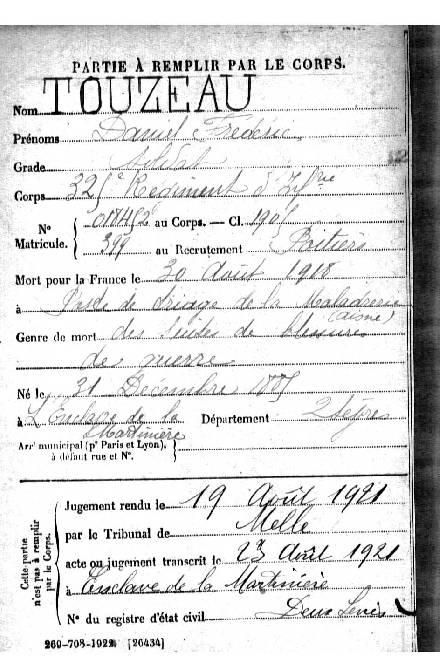 PARTIE À REMPLIR PAR LE CORPS.
Nom TOUZEAU
Prénoms Daniel Frédéric
Grade Soldat
Corps 325e Régiment d'Infrie
N° Matricule. au Corps. — Cl. 1905
399 au Recrutement Poitiers
Mort pour la France le 30 Août 1918
à Poste de triage de la Maladrerie (Aisne)
Genre de mort des suites de blessures
de guerre
Né le 31 Décembre 1885
à l'Enclave de la Martinière Département 2 Sèvres
Arrt municipal (pr Paris et Lyon),
à défaut rue et N°.
Cette partie n'est pas à remplir par le Corps.
Jugement rendu le 19 Avril 1921
par le Tribunal de Melle
acte ou jugement transcrit le 27 Avril 1921
à Enclave de la Martinière
N° du registre d'état civil Deux Sèvres
260-708-1922 [26434]